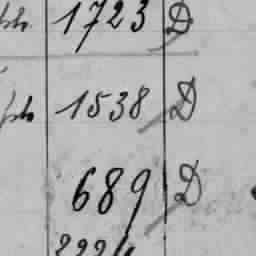 1723 D
1538 D
689 D